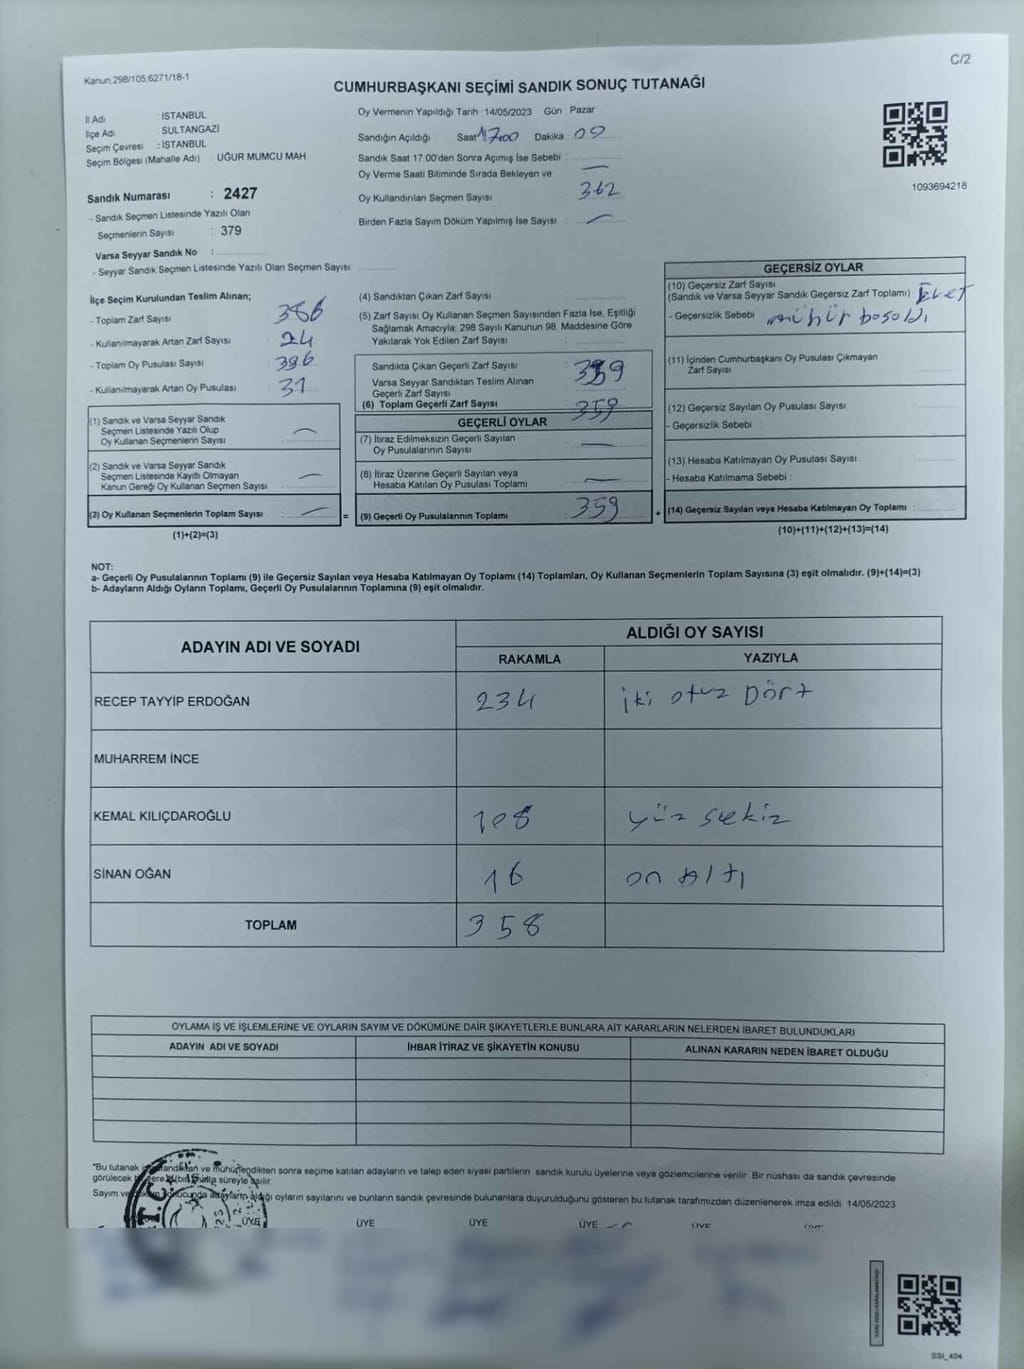 Kanun:298/105;6271/18-1
C/2
CUMHURBAŞKANI SEÇİMİ SANDIK SONUÇ TUTANAĞI
İl Adı : İSTANBUL
İlçe Adı : SULTANGAZİ
Seçim Çevresi : İSTANBUL
Seçim Bölgesi (Mahalle Adı) : UĞUR MUMCU MAH.
Sandık Numarası : 2427
- Sandık Seçmen Listesinde Yazılı Olan
Seçmenlerin Sayısı : 379
Varsa Seyyar Sandık No :
- Seyyar Sandık Seçmen Listesinde Yazılı Olan Seçmen Sayısı:
Oy Vermenin Yapıldığı Tarih :14/05/2023 Gün : Pazar
Sandığın Açıldığı Saat 1700 Dakika 00
Sandık Saat 17.00'den Sonra Açımış İse Sebebi :
Oy Verme Saati Bitiminde Sırada Bekleyen ve
Oy Kullandırılan Seçmen Sayısı : 362
Birden Fazla Sayım Döküm Yapılmış İse Sayısı : —
1093694218
İlçe Seçim Kurulundan Teslim Alınan;
- Toplam Zarf Sayısı : 386
- Kullanılmayarak Artan Zarf Sayısı : 24
- Toplam Oy Pusulası Sayısı : 396
- Kullanılmayarak Artan Oy Pusulası : 31
(1) Sandık ve Varsa Seyyar Sandık
Seçmen Listesinde Yazılı Olup
Oy Kullanan Seçmenlerin Sayısı : —
(2) Sandık ve Varsa Seyyar Sandık
Seçmen Listesinde Kayıtlı Olmayan
Kanun Gereği Oy Kullanan Seçmen Sayısı : —
(3) Oy Kullanan Seçmenlerin Toplam Sayısı : — =
(1)+(2)=(3)
(4) Sandıktan Çıkan Zarf Sayısı :
(5) Zarf Sayısı Oy Kullanan Seçmen Sayısından Fazla İse, Eşitliği
Sağlamak Amacıyla, 298 Sayılı Kanunun 98. Maddesine Göre
Yakılarak Yok Edilen Zarf Sayısı :
Sandıkta Çıkan Geçerli Zarf Sayısı : 359
Varsa Seyyar Sandıktan Teslim Alınan
Geçerli Zarf Sayısı :
(6) Toplam Geçerli Zarf Sayısı : 359
GEÇERLİ OYLAR
(7) İtiraz Edilmeksizin Geçerli Sayılan
Oy Pusulalarının Sayısı : —
(8) İtiraz Üzerine Geçerli Sayılan veya
Hesaba Katılan Oy Pusulası Toplamı : —
(9) Geçerli Oy Pusulalarının Toplamı : 359 +
GEÇERSİZ OYLAR
(10) Geçersiz Zarf Sayısı
(Sandık ve Varsa Seyyar Sandık Geçersiz Zarf Toplamı) : Evet
- Geçersizlik Sebebi : mühür bosoldı
(11) İçinden Cumhurbaşkanı Oy Pusulası Çıkmayan
Zarf Sayısı :
(12) Geçersiz Sayılan Oy Pusulası Sayısı :
- Geçersizlik Sebebi :
(13) Hesaba Katılmayan Oy Pusulası Sayısı :
- Hesaba Katılmama Sebebi :
(14) Geçersiz Sayılan veya Hesaba Katılmayan Oy Toplamı :
(10)+(11)+(12)+(13)=(14)
NOT:
a- Geçerli Oy Pusulalarının Toplamı (9) ile Geçersiz Sayılan veya Hesaba Katılmayan Oy Toplamı (14) Toplamları, Oy Kullanan Seçmenlerin Toplam Sayısına (3) eşit olmalıdır. (9)+(14)=(3)
b- Adayların Aldığı Oyların Toplamı, Geçerli Oy Pusulalarının Toplamına (9) eşit olmalıdır.
ADAYIN ADI VE SOYADI
ALDIĞI OY SAYISI
RAKAMLA YAZIYLA
RECEP TAYYİP ERDOĞAN 234 iki otuz Dört
MUHARREM İNCE
KEMAL KILIÇDAROĞLU 108 yüz sekiz
SİNAN OĞAN 16 on Altı
TOPLAM 358
OYLAMA İŞ VE İŞLEMLERİNE VE OYLARIN SAYIM VE DÖKÜMÜNE DAİR ŞİKAYETLERLE BUNLARA AİT KARARLARIN NELERDEN İBARET BULUNDUKLARI
ADAYIN ADI VE SOYADI İHBAR İTİRAZ VE ŞİKAYETİN KONUSU ALINAN KARARIN NEDEN İBARET OLDUĞU
"Bu tutanak ve mühürlendikten sonra seçime katılan adayların ve talep eden siyasi partilerin sandık kurulu üyelerine veya gözlemcilerine verilir. Bir nüshası da sandık çevresinde
görülecek süreyle asılır.
Sayım ve sonucunda adayların aldığı oyların sayılarını ve bunların sandık çevresinde bulunanlara duyurulduğunu gösteren bu tutanak tarafımızdan düzenlenerek imza edildi. 14/05/2023
T.C.
ÜYE ÜYE ÜYE ÜYE ÜYE ÜYE
SSI_404